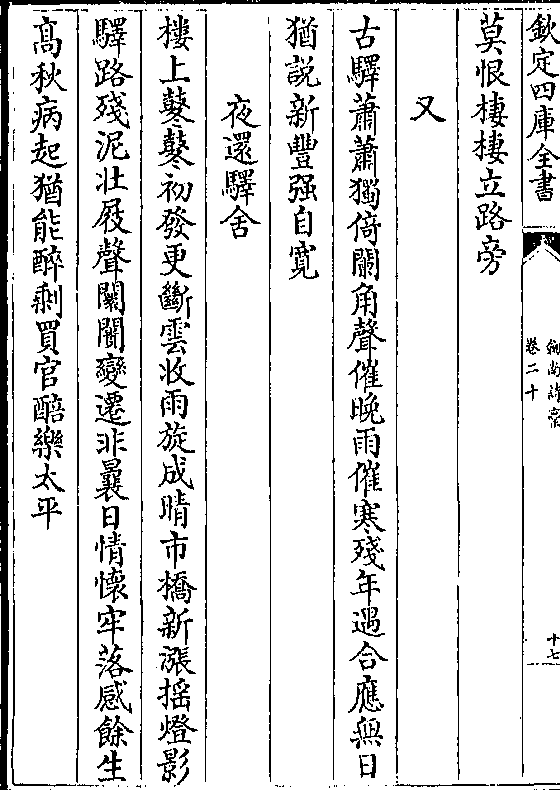 欽定四庫全書
劍南詩稾
卷二十
十七
莫恨棲棲立路旁
又
古驛蕭蕭獨倚闌角聲催晚雨催寒殘年遇合應無日
猶說新豐强自寛
夜還驛舍
樓上鼕鼕初發更斷雲收雨旋成晴市橋新漲搖燈影
驛路殘泥壯屐聲闤闠變遷非曩日情懷牢落感餘生
髙秋病起猶能醉剩買官醅樂太平